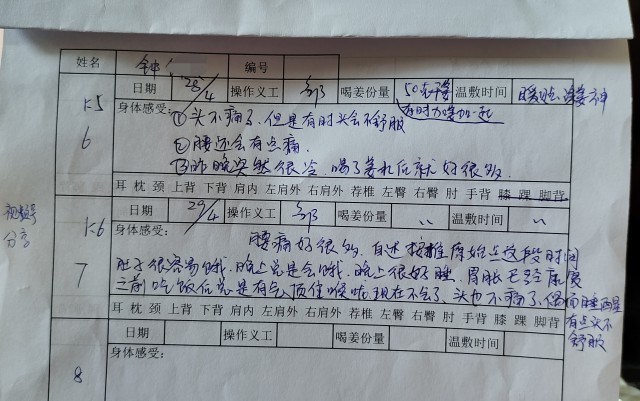 姓名 钟 编号
日期 28/4 操作义工 邹 喝姜份量 50克干姜 温敷时间
有时加
K5
6
身体感受:①头不痛了,但是有时头会不舒服
②腰还会有点痛
③昨晚突然很冷,喝了姜礼后就好很多
耳 枕 颈 上背 下背 肩内 左肩外 右肩外 荐椎 左臀 右臀 肘 手背 膝 踝 脚背
视频号
分享
K6
7
日期 29/4 操作义工 邹 喝姜份量 〃 温敷时间 〃
身体感受:
腰痛好很多,自述按推原始点这段时间
肚子很容易饿,晚上总是会饿,晚上很好睡,胃胀已经康复
之前吃饭后总是有气顶住喉咙现在不会了,头也不痛了,偶而
有点头不
舒服
耳 枕 颈 上背 下背 肩内 左肩外 右肩外 荐椎 左臀 右臀 肘 手背 膝 踝 脚背
日期 操作义工 喝姜份量 温敷时间
身体感受:
8